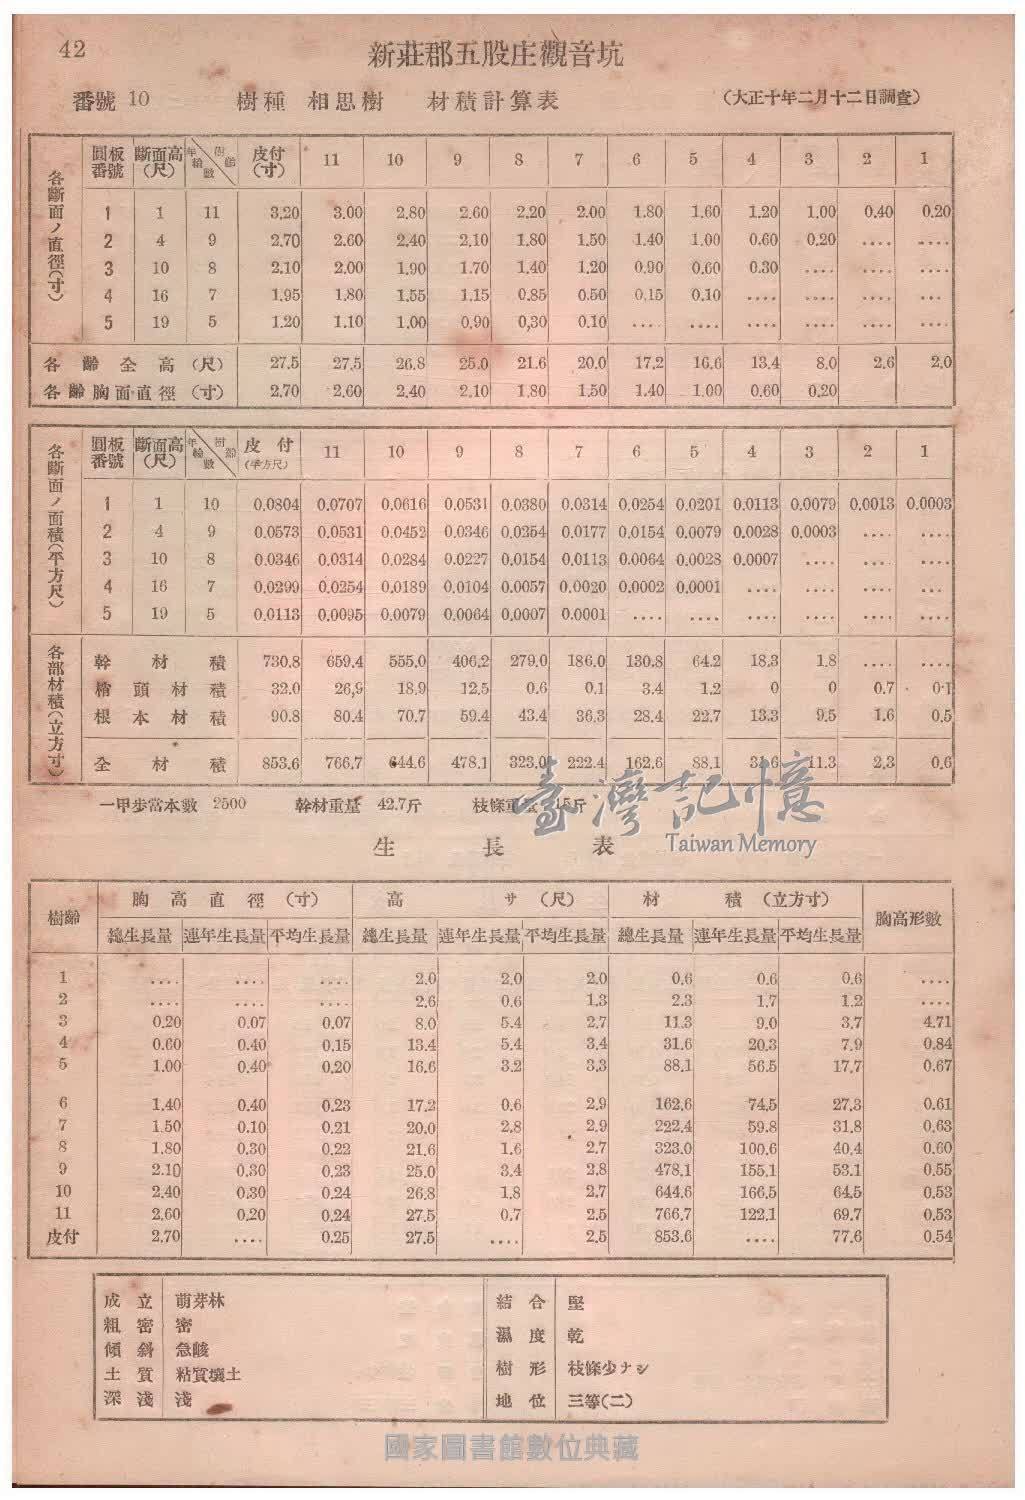 42
新莊郡五股庄觀音坑
番號 10 樹種 相思樹 材積計算表 (大正十年二月十二日調査)
各斷面ノ直徑(寸) 圓板番號 斷面高(尺) 年輪數 樹齡 皮付(寸) 11 10 9 8 7 6 5 4 3 2 1
1 1 11 3.20 3.00 2.80 2.60 2.20 2.00 1.80 1.60 1.20 1.00 0.40 0.20
2 4 9 2.70 2.60 2.40 2.10 1.80 1.50 1.40 1.00 0.60 0.20 .... ....
3 10 8 2.10 2.00 1.90 1.70 1.40 1.20 0.90 0.60 0.30 .... .... ....
4 16 7 1.95 1.80 1.55 1.15 0.85 0.50 0.15 0.10 .... .... .... ...
5 19 5 1.20 1.10 1.00 0.90 0,30 0.10 .... .... .... .... .... ....
各齡全高(尺) 27.5 27.5 26.8 25.0 21.6 20.0 17.2 16.6 13.4 8.0 2.6 2.0
各齡胸面直徑(寸) 2.70 2.60 2.40 2.10 1.80 1.50 1.40 1.00 0.60 0.20
各斷面ノ面積(平方尺) 圓板番號 斷面高(尺) 年輪數 樹齡 皮付(平方尺) 11 10 9 8 7 6 5 4 3 2 1
1 1 10 0.0804 0.0707 0.0616 0.0531 0.0380 0.0314 0.0254 0.0201 0.0113 0.0079 0.0013 0.0003
2 4 9 0.0573 0.0531 0.0452 0.0346 0.0254 0.0177 0.0154 0.0079 0.0028 0.0003 .... ....
3 10 8 0.0346 0.0314 0.0284 0.0227 0.0154 0.0113 0.0064 0.0028 0.0007 .... .... ....
4 16 7 0.0299 0.0254 0.0189 0.0104 0.0057 0.0020 0.0002 0.0001 .... .... .... ...
5 19 5 0.0113 0.0095 0.0079 0.0064 0.0007 0.0001 .... .... .... .... .... ....
各部材積(立方寸)
幹材積 730.8 659.4 555.0 406.2 279.0 186.0 130.8 64.2 18.3 1.8 .... ....
梢頭材積 32.0 26,9 18.9 12.5 0.6 0.1 3.4 1.2 0 0 0.7 0.1
根本材積 90.8 80.4 70.7 59.4 43.4 36.3 28.4 22.7 13.3 9.5 1.6 0.5
全材積 853.6 766.7 644.6 478.1 323.0 222.4 162.6 88.1 31.6 11.3 2.3 0.6
一甲步當本數 2500 幹材重量 42.7斤 枝條重量 15斤
臺灣記憶
Taiwan Memory
生長表
樹齡 胸高直徑(寸) 高サ(尺) 材積(立方寸) 胸高形數
總生長量 連年生長量 平均生長量 總生長量 連年生長量 平均生長量 總生長量 連年生長量 平均生長量
1 .... .... .... 2.0 2.0 2.0 0.6 0.6 0.6 ....
2 .... .... .... 2.6 0.6 1.3 2.3 1.7 1.2 ....
3 0.20 0.07 0.07 8.0 5.4 2.7 11.3 9.0 3.7 4.71
4 0.60 0.40 0.15 13.4 5.4 3.4 31.6 20.3 7.9 0.84
5 1.00 0.40 0.20 16.6 3.2 3.3 88.1 56.5 17.7 0.67
6 1.40 0.40 0.23 17.2 0.6 2.9 162.6 74.5 27.3 0.61
7 1.50 0.10 0.21 20.0 2.8 2.9 222.4 59.8 31.8 0.63
8 1.80 0.30 0.22 21.6 1.6 2.7 323.0 100.6 40.4 0.60
9 2.10 0.30 0.23 25.0 3.4 2.8 478.1 155.1 53.1 0.55
10 2.40 0.30 0.24 26.8 1.8 2.7 644.6 166.5 64.5 0.53
11 2.60 0.20 0.24 27.5 0.7 2.5 766.7 122.1 69.7 0.53
皮付 2.70 .... 0.25 27.5 .... 2.5 853.6 .... 77.6 0.54
成立 萌芽林 結合 堅
粗密 密
濕度 乾
傾斜 急峻
樹形 枝條少ナシ
土質 粘質壤土
深淺 淺 地位 三等(二)
國家圖書館數位典藏